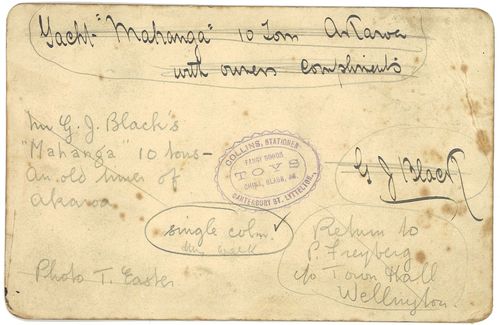 Yacht - "Mahanga" 10 Tom Akaroa
with owners compliments
Mr G. J. Black's
"Mahanga" 10 tons -
An old timer of
akaroa
COLLINS, STATIONER
FANCY GOODS
TOYS
CHINA, GLASS, &c.
CANTERBURY ST. LYTTELTON.
G J Black
single colm.
this week
Return to
P. Freyberg
c/o Town Hall
Wellington
Photo T. Easter